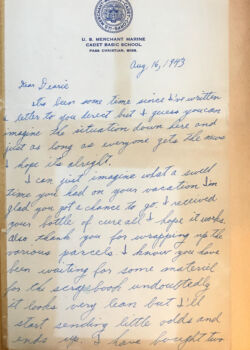 U. S. MERCHANT MARINE
CADET BASIC SCHOOL
PASS CHRISTIAN, MISS.
Aug 16, 1943
Dear Dearie
Its been some time since I've written
a letter to you direct but I guess you can
imagine the situation down here and
just as long as everyone gets the news
I hope its alright.
I can just imagine what a swell
time you had on your vacation I'm
glad you got a chance to go. I received
your bottle of cure all I hope it works.
Also thank you for wrapping up the
various parcels. I know you have
been waiting for some materiel
for the scrapbook undoubtedly
it looks very lean but I'll
start sending little odds and
ends up. I have bought two